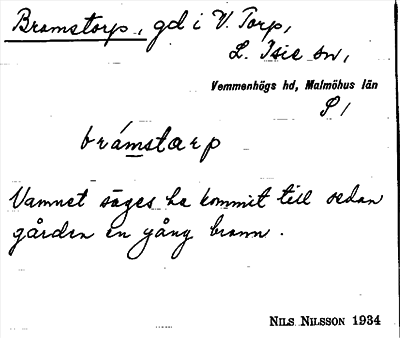 Bramstorp, gd i V. Torp,
L. Isie sn,
Vemmenhögs hd, Malmöhus län
S 1
brámstarp
Namnet säges ha kommit till sedan
gården en gång brann.
NILS NILSSON 1934